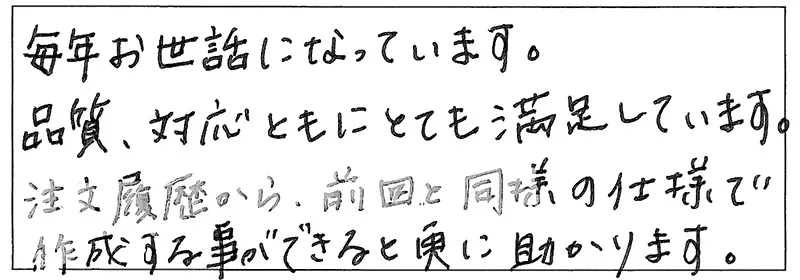 毎年お世話になっています。
品質、対応ともにとても満足しています。
注文履歴から、前回と同様の仕様で
作成する事ができると更に助かります。